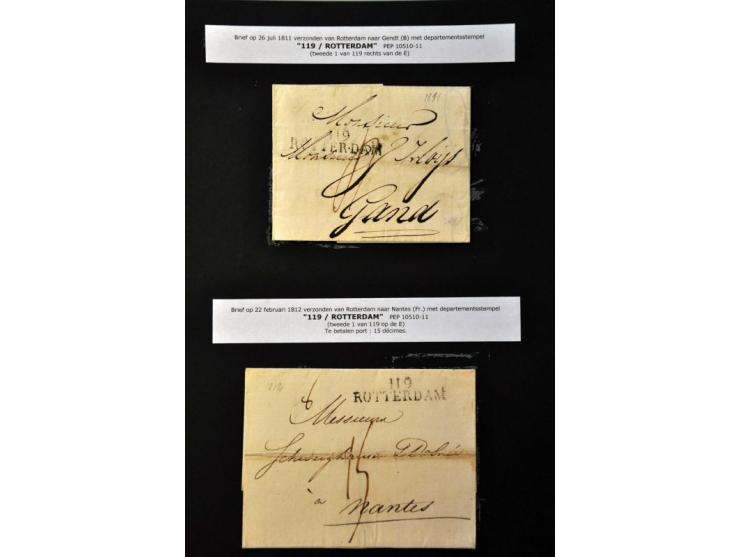 Brief op 26 juli 1811 verzonden van Rotterdam naar Gendt (B) met departementsstempel
"119 / ROTTERDAM" PEP 10510-11
(tweede 1 van 119 rechts van de E)
1811
Monsieur
119
ROTTERDAM
Monsieur
Gand
Brief op 22 februari 1812 verzonden van Rotterdam naar Nantes (Fr.) met departementsstempel
"119 / ROTTERDAM" PEP 10510-11
(tweede 1 van 119 op de E)
Te betalen port : 15 décimes.
119
ROTTERDAM
Messieurs
15
à
Nantes